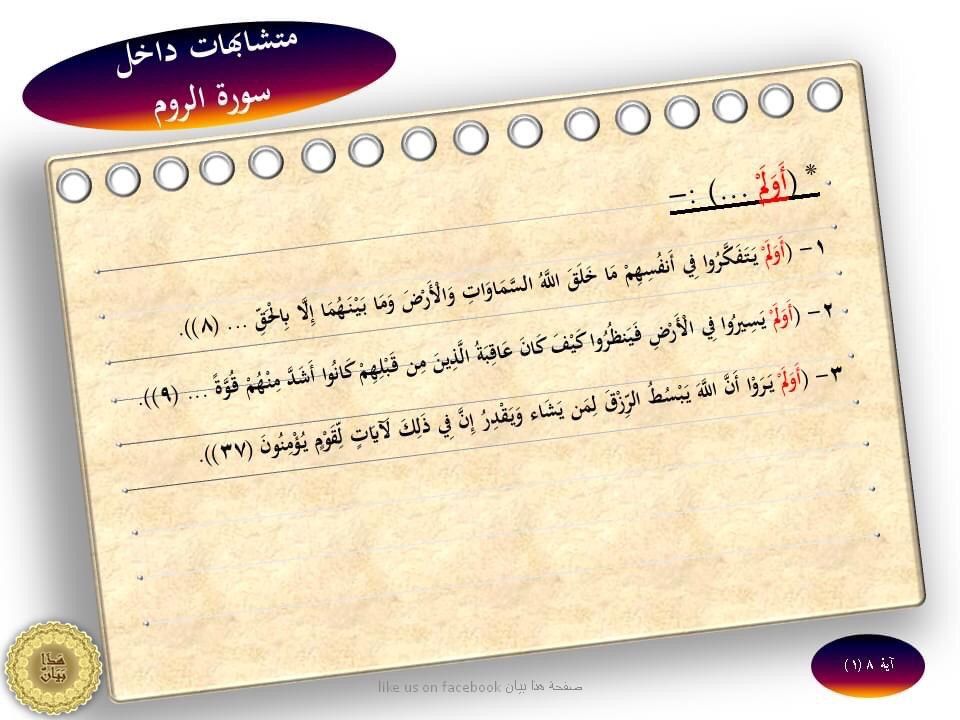 متشابهات داخل
سورة الروم
* (أَوَلَمْ ...) :-
١- (أَوَلَمْ يَتَفَكَّرُوا فِي أَنفُسِهِمْ مَا خَلَقَ اللَّهُ السَّمَاوَاتِ وَالْأَرْضَ وَمَا بَيْنَهُمَا إِلَّا بِالْحَقِّ ... (٨)).
٢- (أَوَلَمْ يَسِيرُوا فِي الْأَرْضِ فَيَنظُرُوا كَيْفَ كَانَ عَاقِبَةُ الَّذِينَ مِن قَبْلِهِمْ كَانُوا أَشَدَّ مِنْهُمْ قُوَّةً ... (٩)).
٣- (أَوَلَمْ يَرَوْا أَنَّ اللَّهَ يَبْسُطُ الرِّزْقَ لِمَن يَشَاء وَيَقْدِرُ إِنَّ فِي ذَلِكَ لَآيَاتٍ لِّقَوْمٍ يُؤْمِنُونَ (٣٧)).
هَذَا
بَيَانٌ
آية ٨ (١)
like us on facebook صفحة هذا بيان